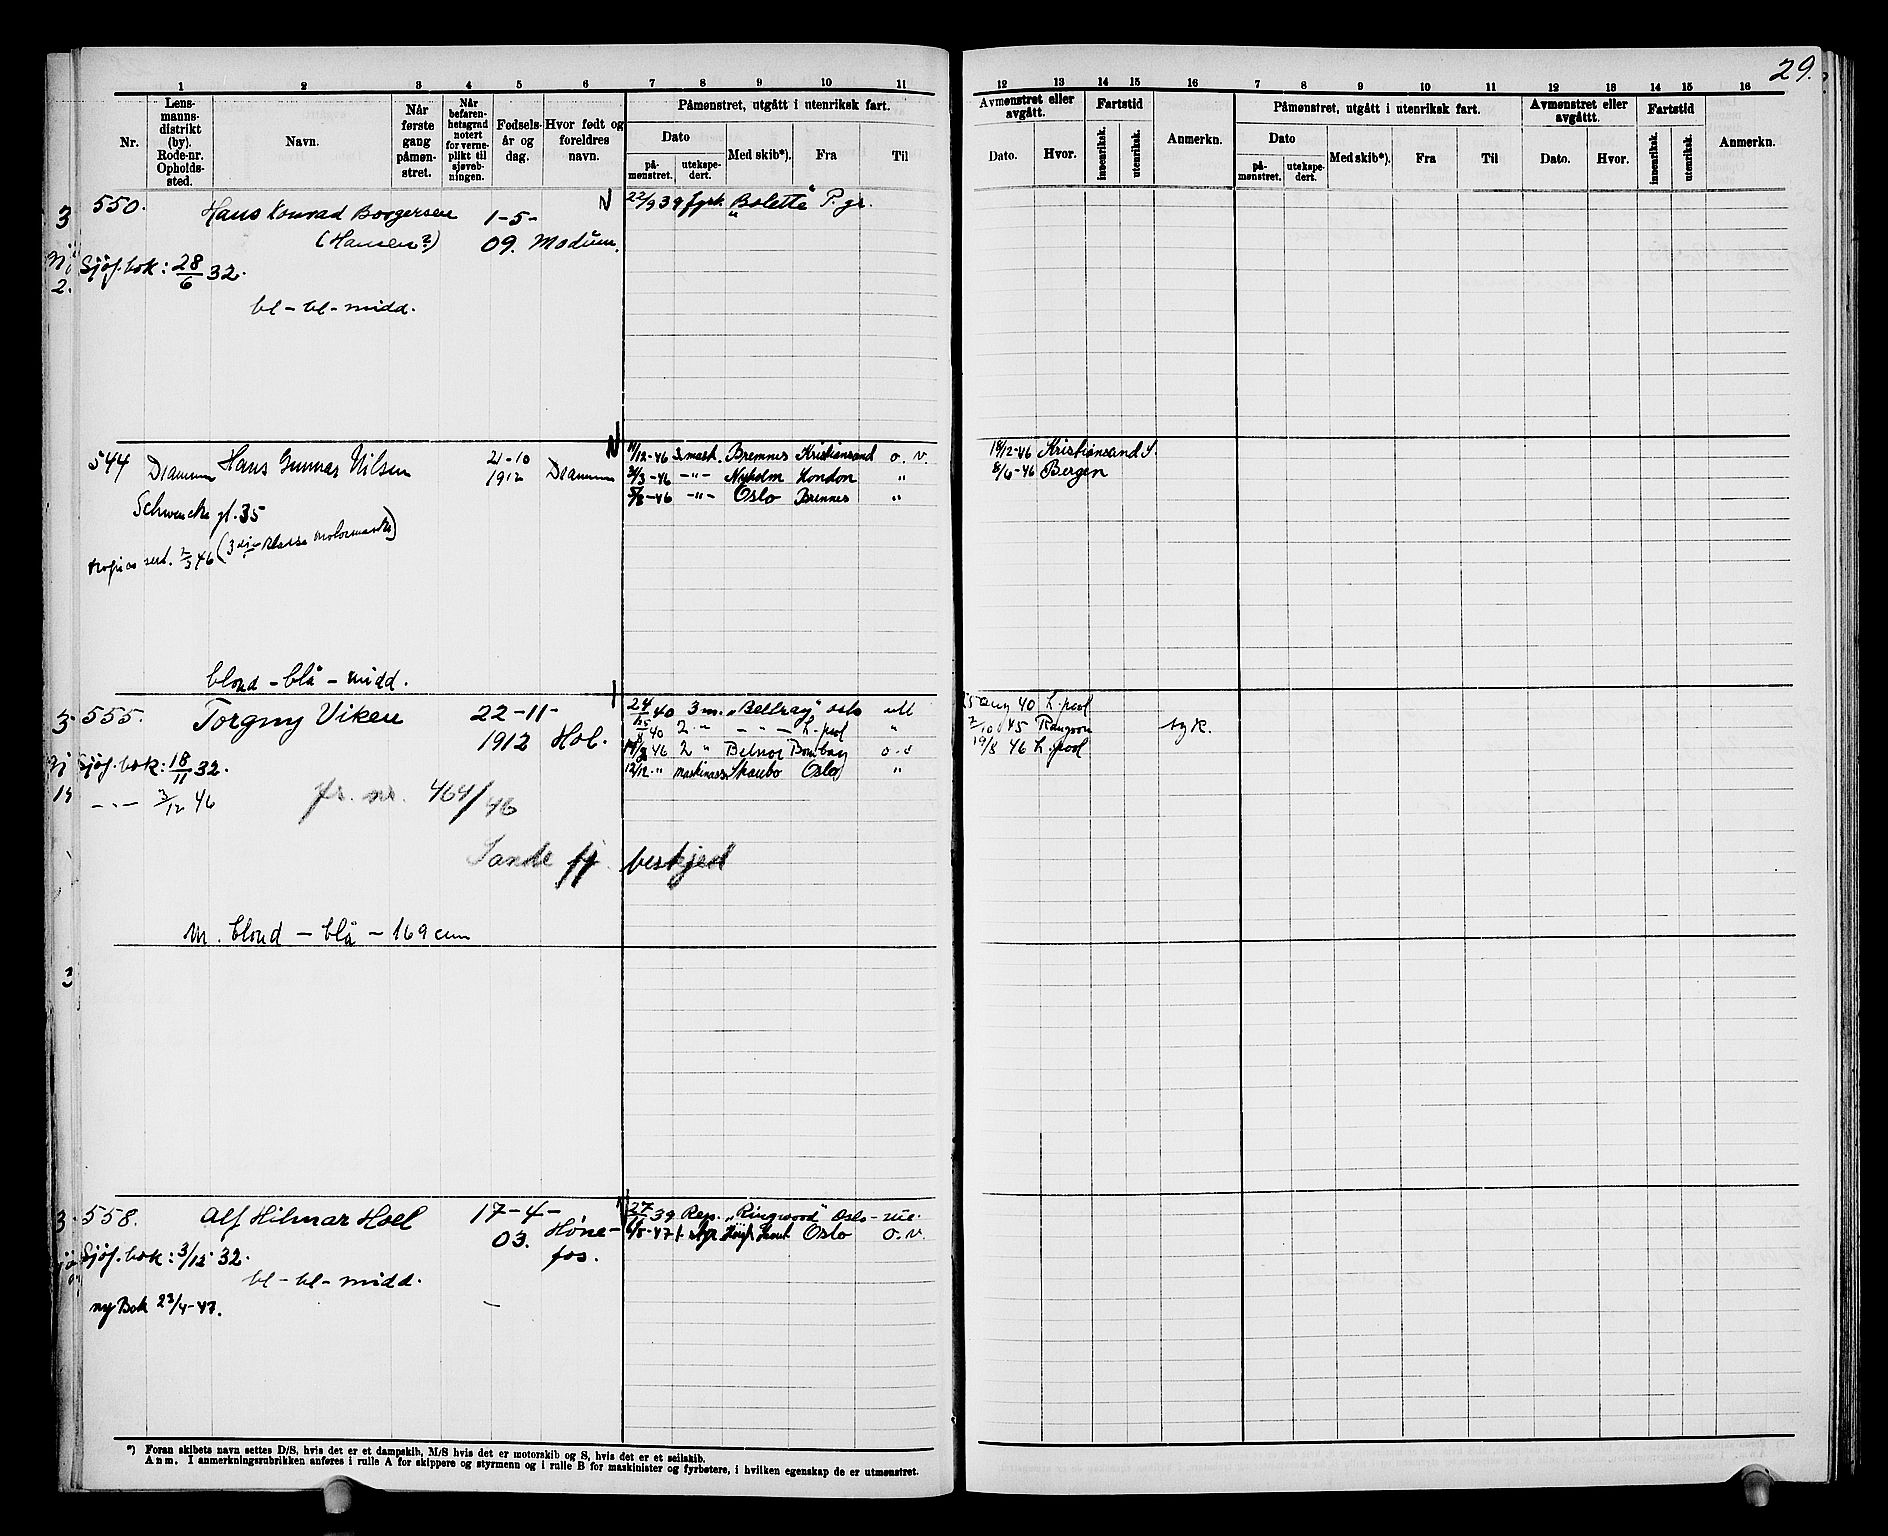 29.
1 2 3 4 5 6 7 8 9 10 11
12 13 14 15 16 7 8 9 10 11 12 13 14 15 16
Nr.
Lens-
manns-
distrikt
(by).
Rode-nr.
Opholds-
sted.
Navn.
Når
første
gang
påmøn-
stret.
Når
befaren-
hetsgrad
notert
for verne-
plikt til
sjøveb-
ningen.
Fødsels-
år og
dag.
Hvor født og
foreldres
navn.
Påmønstret, utgått i utenriksk fart.
Dato
på-
mønstret.
utekspe-
dert.
Med skib*).
Fra
Til
Avmønstret eller
avgått.
Dato.
Hvor.
Fartstid
innenriksk.
utenriksk.
Anmerkn.
Påmønstret, utgått i utenriksk fart.
Dato
på-
mønstret.
utekspe-
dert.
Med skib*).
Fra
Til
Avmønstret eller
avgåttt.
Dato.
Hvor.
Fartstid
innenriksk.
utenriksk.
Anmerkn.
550. Hans Konrad Borgersen 1-5- N 22/9 39 fyrb. "Bolette" P. gr.
(Hansen?) 09. Modum.
Sjøf.bok: 28/6 32.
bl - bl - midd.
544 Drammen Hans Gunnar Nilsen 21-10 1912 Drammen N
/12-46 3 mask. Bremnes Kristiansand o. v. 18/12-46 Kristiansand S.
/3-46 -"- Nyholm London " 8/6-46 Bergen
/8-46 -"- Oslo Bremnes "
Schwencks gt. 35
2/3 46 (3dje klasse motormaskt)
blond - blå - midd.
555. Torgny Viken 22-11- 1912 Hol.
24/ 40 3 m. "Bellray" Oslo utl 15 aug 40 L.pool
15/8 40 2 " - " - L.pool " 2/10 45 Rangoon syk.
46 2 " Belnor Bombay o.v 19/8 46 L.pool
12/12 " Skaubo Oslo "
Sjøf.bok: 18/11 32.
-"- 3/12 46 fr. nr. 464/46
Sande ff. beskjed
m. blond - blå - 169 cm
558. Alf Hilmar Hoel 17-4- 03. Hønefos.
27/ 39 Rep. "Ringwood" Oslo - ute.
/5-47 1. Høegh Oslo o.v.
Sjøf.bok: 3/12 32.
bl - bl - midd.
ny Bok 23/4-47.
*) Foran skibets navn settes D/S, hvis det er et dampskib, M/S hvis det er motorskib og S, hvis det er et seilskib.
Anm. I anmerkningsrubrikken anføres i rulle A for skippere og styrmenn og i rulle B for maskinister og fyrbøtere, i hvilken egenskap de er utmønstret.